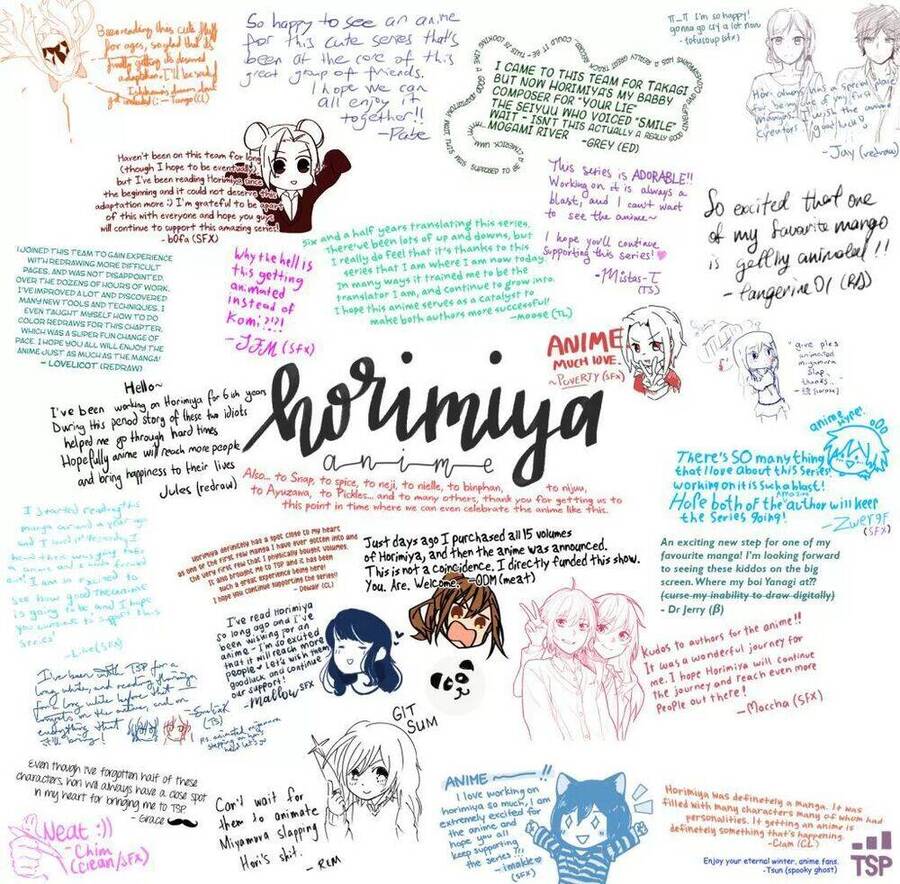 Been reading this cute fluff
for ages, so glad that it's
finally getting its deserved
adaptation. I'll be sad if
- Tango (CL)
So happy to see an anime
for this cute series that's
been at the core of this
great group of friends.
I hope we can
all enjoy it
together!!
- Pabe
I CAME TO THIS TEAM FOR TAKAGI
BUT NOW HORIMIYA'S MY BABBY
COMPOSER FOR "YOUR LIE"
THE SEIYUU WHO VOICED "SMILE"
WAIT - ISN'T THIS ACTUALLY A REALLY GOOD
MOGAMI RIVER
-GREY (ED)
π_π I'm so happy!
gonna go cry a lot now
-tofusoup (SFX)
- Jay (redraw)
Haven't been on this team for long
(though I hope to be eventually)
but I've been reading Horimiya since
the beginning and it could not deserve this
adaptation more :) I'm grateful to be apart
of this with everyone and hope you guys
will continue to support this amazing series!
- b0fa (SFX)
This series is ADORABLE!!
Working on it is always a
blast, and I can't wait
to see the anime~
I hope you'll continue
supporting this series!♥
-Mistas-I
(TS)
So excited that one
of my favourite manga
is getting animated!!
- tangerine01 (RD)
I JOINED THIS TEAM TO GAIN EXPERIENCE
WITH REDRAWING MORE DIFFICULT
PAGES, AND WAS NOT DISAPPOINTED.
OVER THE DOZENS OF HOURS OF WORK,
I'VE IMPROVED A LOT AND DISCOVERED
MANY NEW TOOLS AND TECHNIQUES. I
EVEN TAUGHT MYSELF HOW TO DO
COLOR REDRAWS FOR THIS CHAPTER,
WHICH WAS A SUPER FUN CHANGE OF
PACE. I HOPE YOU ALL ENJOY THE
ANIME JUST AS MUCH AS THE MANGA!
- LOVELICOT (REDRAW)
Why the hell is
this getting
animated
instead of
Komi?!?!
-JFM (SFX)
Six and a half years translating this series.
There've been lots of up and downs, but
I really do feel that it's thanks to this
series that I am where I am now today.
In many ways it trained me to be the
translator I am, and continue to grow into.
I hope this anime serves as a catalyst to
make both authors more successful!
-moose (TL)
ANIME
MUCH LOVE.
~POVERTY (SFX)
give ples
animated
miyamura
slap
thanks..
Hello~
I've been working on Horimiya for 6ish years
During this period story of these two idiots
helped me go through hard times
Hopefully anime will reach more people
and bring happiness to their lives
Jules (redraw)
horimiya
anime
Also... to Snap, to spice, to neji, to nielle, to binphan, to nijuu,
to Ayuzawa, to Pickles... and to many others, thank you for getting us to
this point in time where we can even celebrate the anime like this.
anime
HYPE!
There's SO many thing
that I love about this Series
working on it is such a blast!
Hope both of the Amazing author will keep
the Series going!
-Zwerg F
(SFX)
I started reading this
manga around a year ago
and I loved it. Yesterday I
heard there was going to be
an anime and I
out! I am so excited to
see how good the anime
is going to be and I hope
you continue to support this
series
-Like (SFX)
Horimiya definitely has a spot close to my heart
as one of the first few manga I have ever gotten into and
the very first few that I physically bought volumes.
It also brought me to TSP and it has been
such a great experience being here!
I hope you continue supporting the series!!
- Dewarr (CL)
Just days ago I purchased all 15 volumes
of Horimiya, and then the anime was announced.
This is not a coincidence. I directly funded this show.
You. Are. Welcome. -ODM (meat)
An exciting new step for one of my
favourite manga! I'm looking forward
to seeing these kiddos on the big
screen. Where my boi Yanagi at??
(curse my inability to draw digitally)
- Dr Jerry (β)
I've read Horimiya
so long ago and I've
been wishing for an
anime - I'm so excited
that it will reach more
people ♥ Let's wish them
goodluck and continue
our support!
-Mallow SFX
Kudos to authors for the anime!!
It was a wonderful journey for
me. I hope Horimiya will continue
the journey and reach even more
people out there!
-Moccha (SFX)
I've been with TSP for a
long while, and reading Horimiya
for a long while before that. I
(TS)
GIT
SUM
Even though I've forgotten half of these
characters, hori will always have a close spot
in my heart for bringing me to TSP
- Grace
Can't wait for
them to animate
Miyamura slapping
Hori's shit.
- REM
ANIME ~!!
I love working on
horimiya so much, I am
extremely excited for
the anime and
hope you all
keep supporting
the series!!!
-imakle ♥
(SFX)
Horimiya was definetely a manga. It was
filled with many characters many of whom had
personalities. It getting an anime is
definetely something that's happening.
-Clam (CL)
Neat :))
- Chim
(clean/SFX)
Enjoy your eternal winter, anime fans.
-Tsun (spooky ghost)
TSP